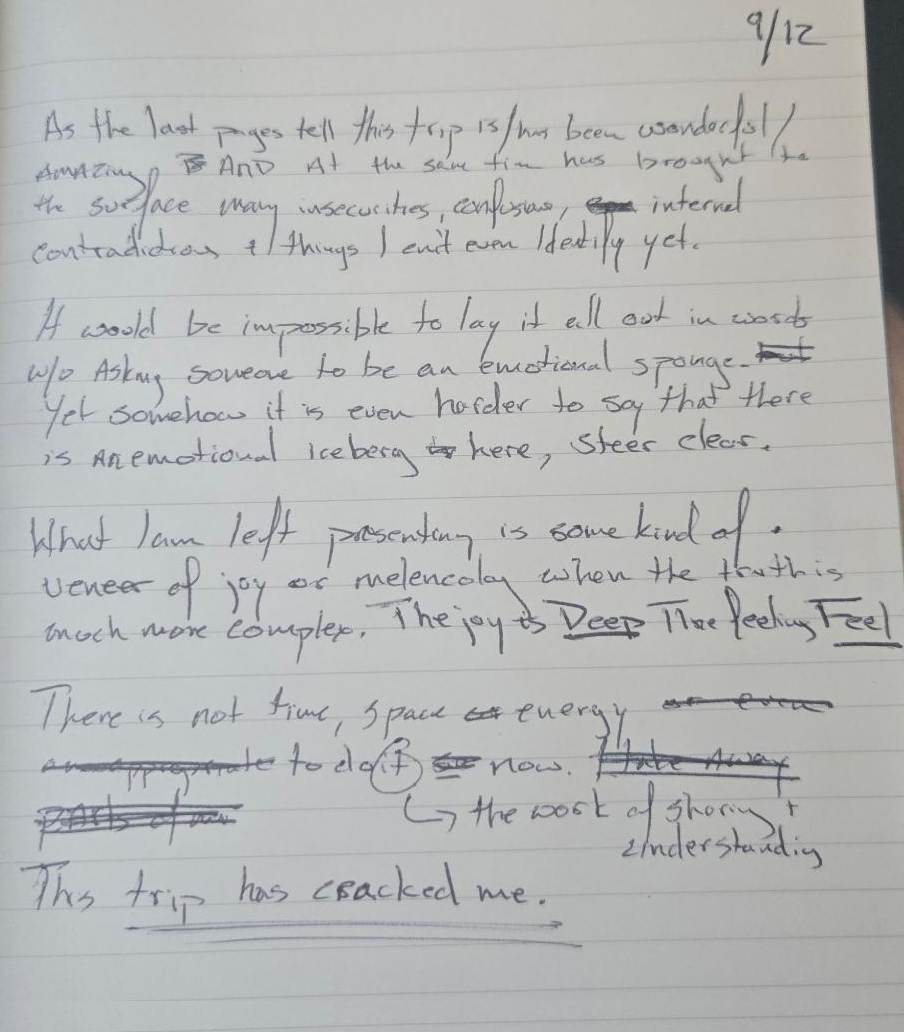 9/12
As the last pages tell this trip is/has been wonderful/
AMAZing AND At the same tim has brought to
the surface many insecurities, confusion, internal
contradictions + things I can't even Identify yet.
It would be impossible to lay it all out in words
w/o Asking someone to be an emotional sponge. but
Yet somehow it is even harder to say that there
is an emotional iceberg to here, steer clear.
What I am left presenting is some kind of
veneer of joy or melencoly when the truth is
much more complex. The joy is Deep The feeling Feel
There is not time, space or energy or even
an appropriate to do it now. I take Away
parts of me
↳ the work of sharing +
understanding
This trip has cracked me.